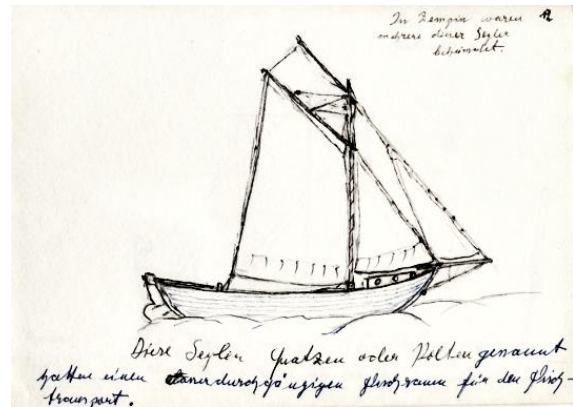 In Zempin waren
mehrere dieser Segler
beheimatet.
Diese Segler Quatzen oder Polten genannt
hatten einen Fischraum für den Fisch-
transport.